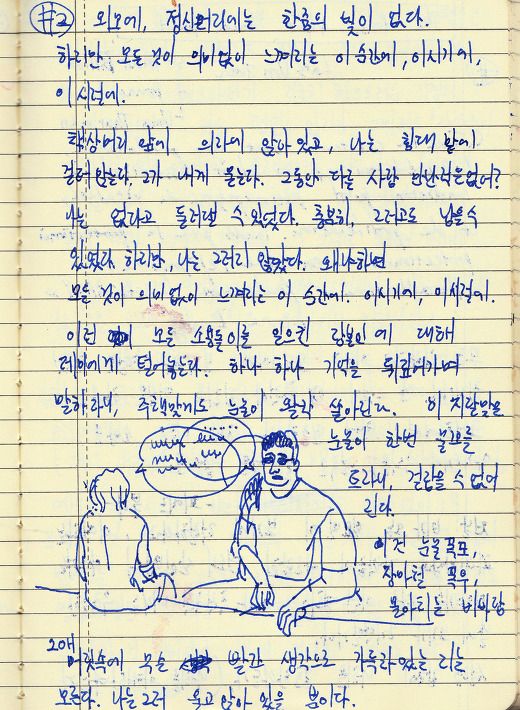 #2 외모에, 정신머리에는 한줌의 빛이 없다.
하지만 모든 것이 의미없이 느껴지는 이 순간에, 이시기에,
이 시절에.
책상머리 앞에 의자에 앉아 있고, 나는 침대 맡에
걸터 앉는다. 그가 내게 묻는다. 그동안 다른 사람 만난적은 없어?
나는 없다고 둘러댈 수 있었다. 충분히, 그러고도 남을 수
있었다. 하지만, 나는 그러지 않았다. 왜냐하면
모든 것이 의미없이 느껴지는 이 순간에. 이시기에, 이시절에.
이런 모든 소용돌이를 일으킨 장본인에 대해
털어놓는다. 하나 하나 기억을 되짚어가며
말하자니, 주책맞게도 눈물이 왈칵 쏟아진다. 이 지랄맞은
눈물이 한번 물꼬를
트자니, 걷잡을 수 없어
진다.
이건 눈물폭포,
장마철 폭우,
몰아치는 비바람
머릿속에 무슨 빨간 생각으로 가득차있는지는
모른다. 나는 그저 울고 앉아 있을 뿐이다.